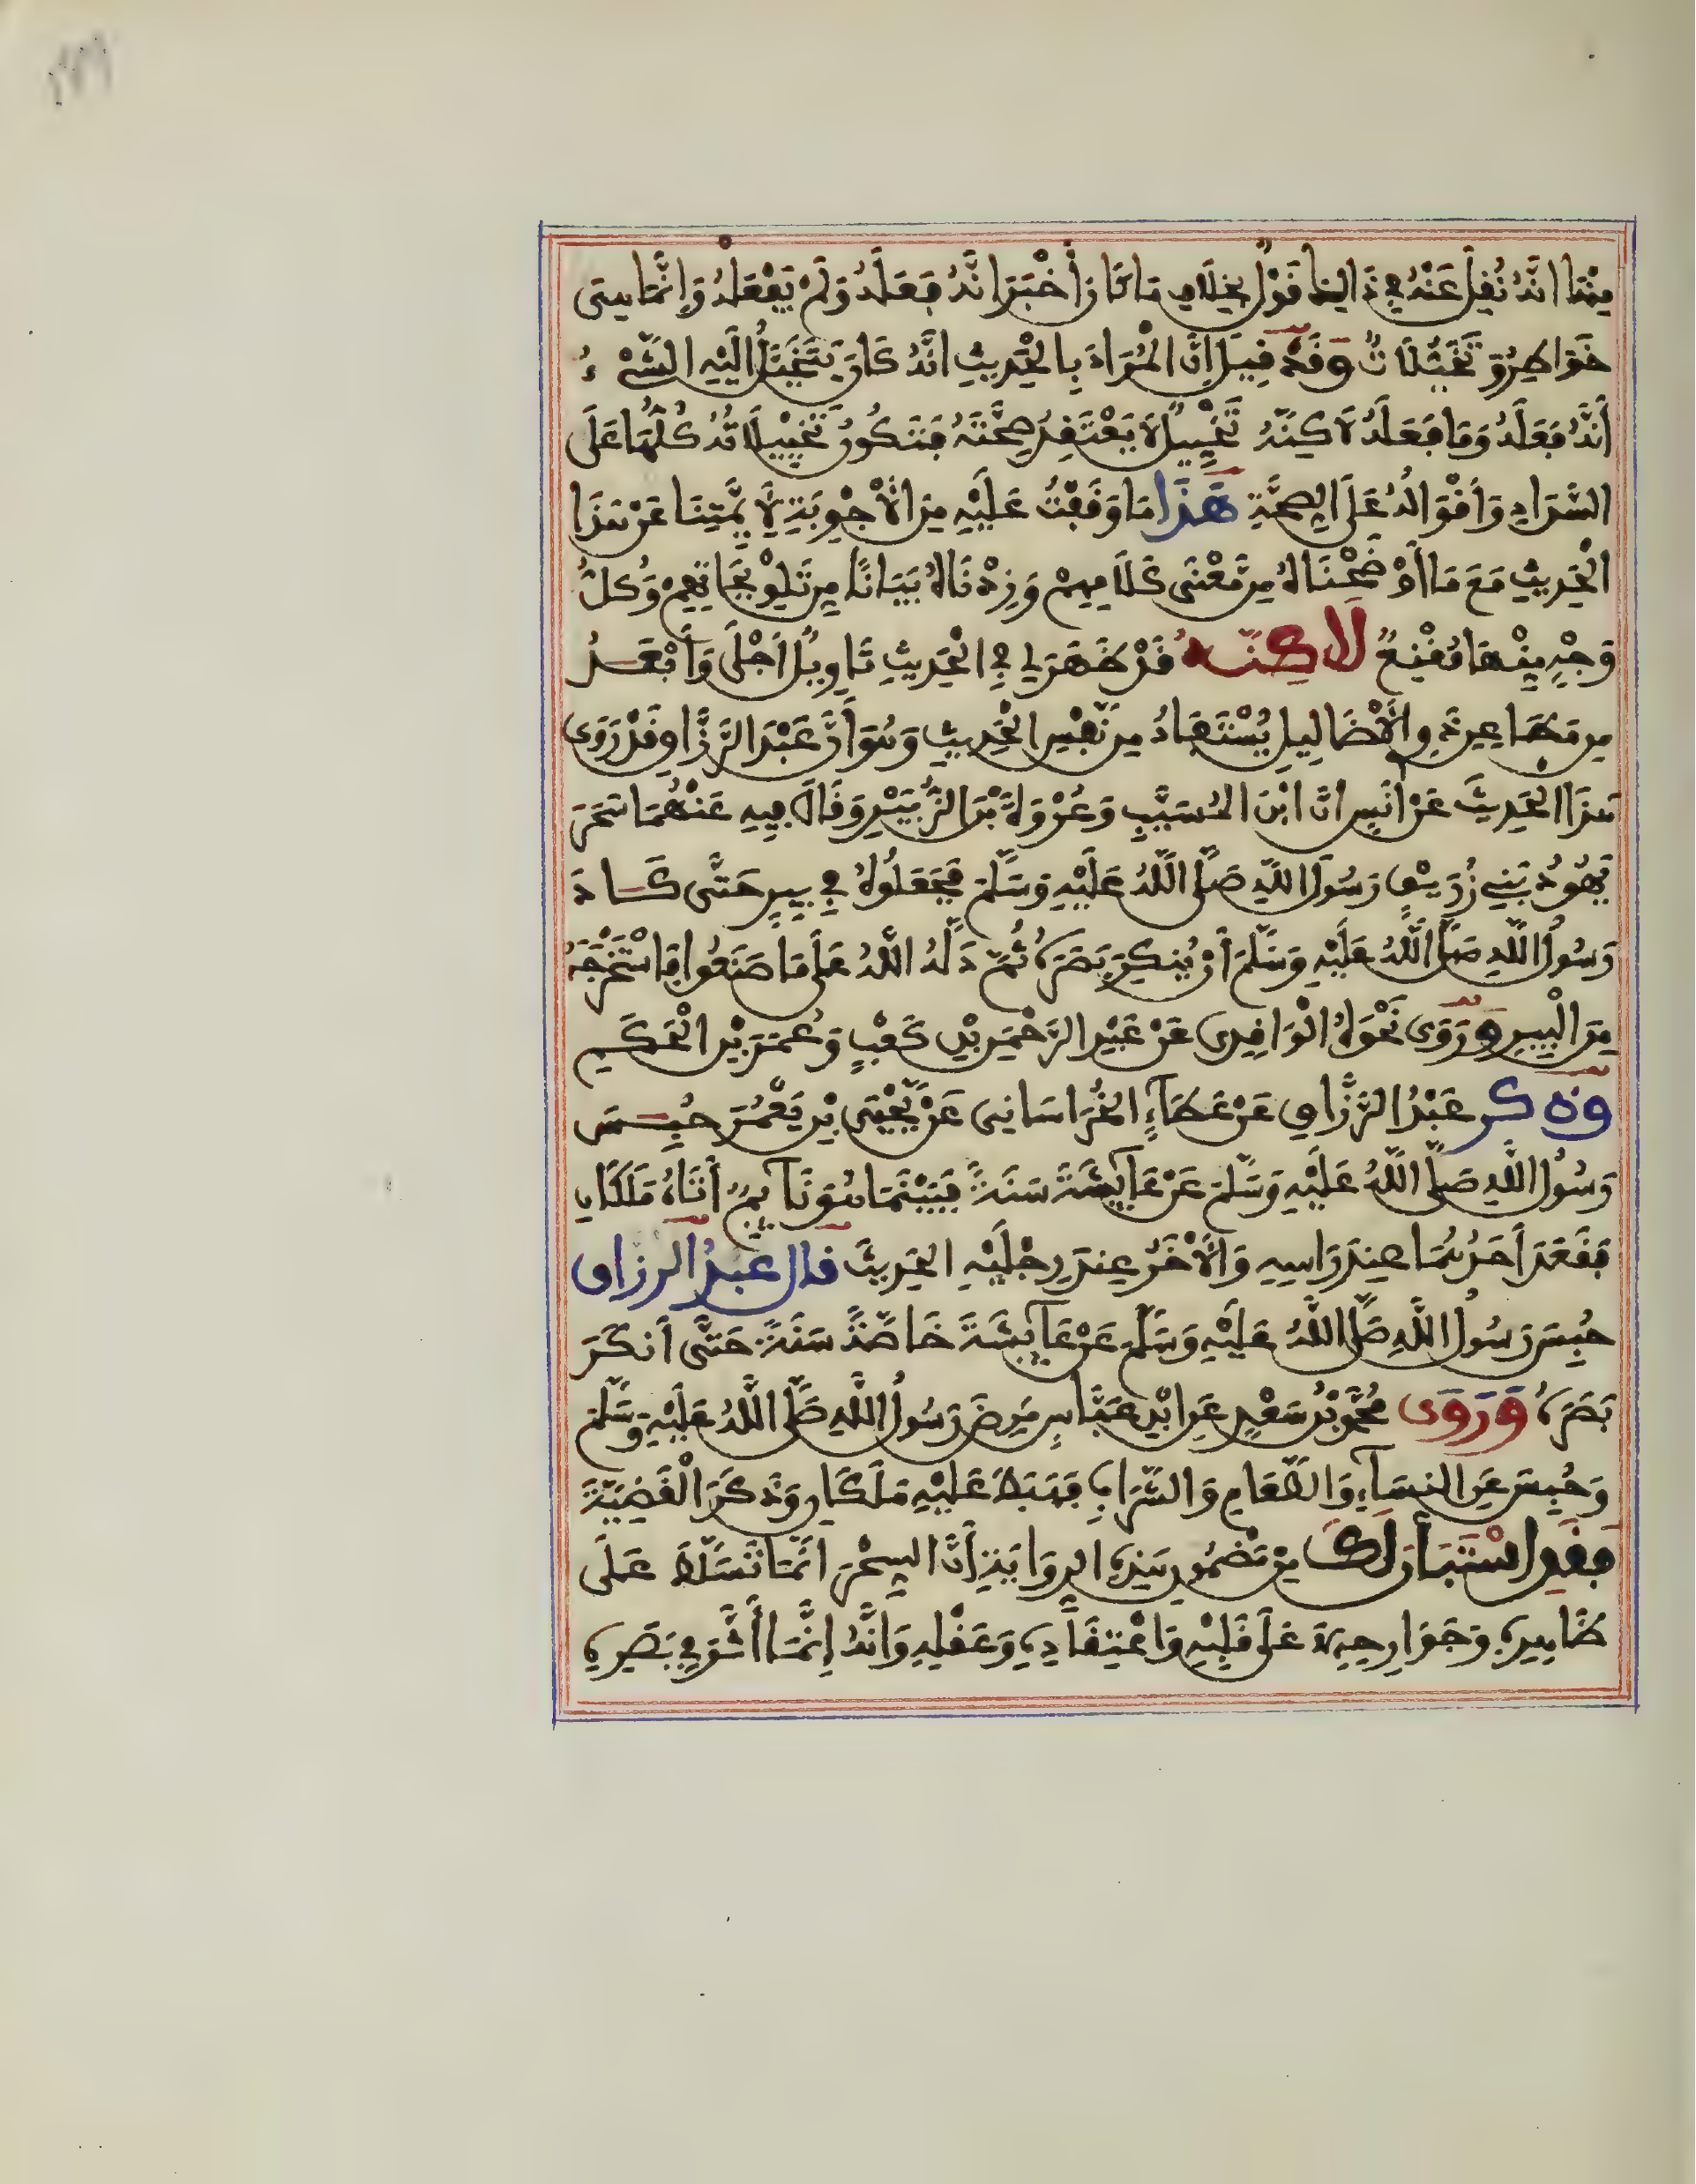 مِنْهَا أَنَّهُ نُفِلَ عَنْهُ فِي ذَالِكَ قَوْلٌ بِخِلَافِ مَا كَانَ أَخْبَرَ أَنَّهُ فَعَلَهُ وَلَمْ يَفْعَلْهُ وَإِنَّمَا هِيَ
خَوَاطِرُ وَتَخَيُّلَاتٌ وَقَدْ قِيلَ إِنَّ الْمُرَادَ بِالْحَدِيثِ أَنَّهُ كَانَ يَتَخَيَّلُ إِلَيْهِ الشَّيْءُ
أَنَّهُ فَعَلَهُ وَمَا فَعَلَهُ لَاكِنَّهُ تَخْيِيلٌ لَا يَعْتَقِدُ صِحَّتَهُ فَتَكُونُ تَخْيِيلَاتُهُ كُلُّهَا عَلَى
السَّدَادِ وَأَقْوَالُهُ عَلَى الصِّحَّةِ هَذَا مَا وَقَفْتُ عَلَيْهِ مِنَ الْأَجْوِبَةِ لِأَئِمَّتِنَا عَنْ هَذَا
الْحَدِيثِ مَعَ مَا أَوْضَحْنَاهُ مِنْ مَعْنَى كَلَامِهِمْ وَزِدْنَاهُ بَيَانًا مِنْ تَلْوِيحَاتِهِمْ وَكُلُّ
وَجْهٍ مِنْهَا مُقْنِعٌ لَاكِنَّهُ قَدْ ظَهَرَ لِي فِي الْحَدِيثِ تَاوِيلٌ أَجْلَى وَأَبْعَدُ
مِن مَطَاعِنِ ذَوِي الْأَضَالِيلِ يُسْتَفَادُ مِن نَفْسِ الْحَدِيثِ وَهُوَ أَنَّ عَبْدَ الرَّزَّاقِ قَدْ رَوَى
هَذَا الْحَدِيثَ عَنْ ابْنِ الْمُسَيَّبِ وَعُرْوَةَ بْنِ الزُّبَيْرِ وَقَالَ فِيهِ عَنْهُمَا سَحَرَ
يَهُودُ بَنِي زُرَيْقٍ رَسُولَ اللَّهِ صَلَّى اللَّهُ عَلَيْهِ وَسَلَّمَ فَجَعَلُوهُ فِي بِيرٍ حَتَّى كَادَ
رَسُولُ اللَّهِ صَلَّى اللَّهُ عَلَيْهِ وَسَلَّمَ أَنْ يُنكِرَ بَصَرَهُ ثُمَّ دَلَّهُ اللَّهُ عَلَى مَا صَنَعُوا فَاسْتَخْرَجَهُ
مِنَ الْبِيرِ وَرَوَى نَحْوَهُ الْوَاقِدِي عَنْ عَبْدِ الرَّحْمَنِ بْنِ كَعْبٍ وَعُمَرَ بْنِ الْحَكَمِ
وَذَكَرَ عَبْدُ الرَّزَّاقِ عَنْ عَطَاءٍ الْخُرَاسَانِي عَنْ يَحْيَى بْنِ يَعْمُرَ حُبِسَ
رَسُولُ اللَّهِ صَلَّى اللَّهُ عَلَيْهِ وَسَلَّمَ عَنْ عَائِشَةَ سَنَةً فَبَيْنَمَا هُوَ نَائِمٌ أَتَاهُ مَلَكَانِ
فَقَعَدَ أَحَدُهُمَا عِندَ رَاسِهِ وَالْأَخَرُ عِندَ رِجْلَيْهِ الْحَدِيثَ قَالَ عَبْدُ الرَّزَّاقِ
حُبِسَ رَسُولُ اللَّهِ صَلَّى اللَّهُ عَلَيْهِ وَسَلَّمَ عَنْ عَائِشَةَ خَاصَّةً سَنَةً حَتَّى أَنكَرَ
بَصَرَهُ وَرَوَى مُحَمَّدُ بْنُ سَعْدٍ عَنِ ابْنِ عَبَّاسٍ مَرِضَ رَسُولُ اللَّهِ صَلَّى اللَّهُ عَلَيْهِ وَسَلَّمَ
وَحُبِسَ عَنِ النِّسَاءِ وَالطَّعَامِ وَالشَّرَابِ فَهَبَطَ عَلَيْهِ مَلَكَانِ وَذَكَرَ الْقَضِيَّةَ
فَقَدِ اسْتَبَانَ لَكَ مِنْ مَضْمُونِ هَذِهِ الرِّوَايَةِ أَنَّ السِّحْرَ إِنَّمَا تَسَلَّطَ عَلَى
ظَاهِرِهِ وَجَوَارِحِهِ لَا عَلَى قَلْبِهِ وَاعْتِقَادِهِ وَعَقْلِهِ وَأَنَّهُ إِنَّمَا أَثَّرَ فِي بَصَرِهِ